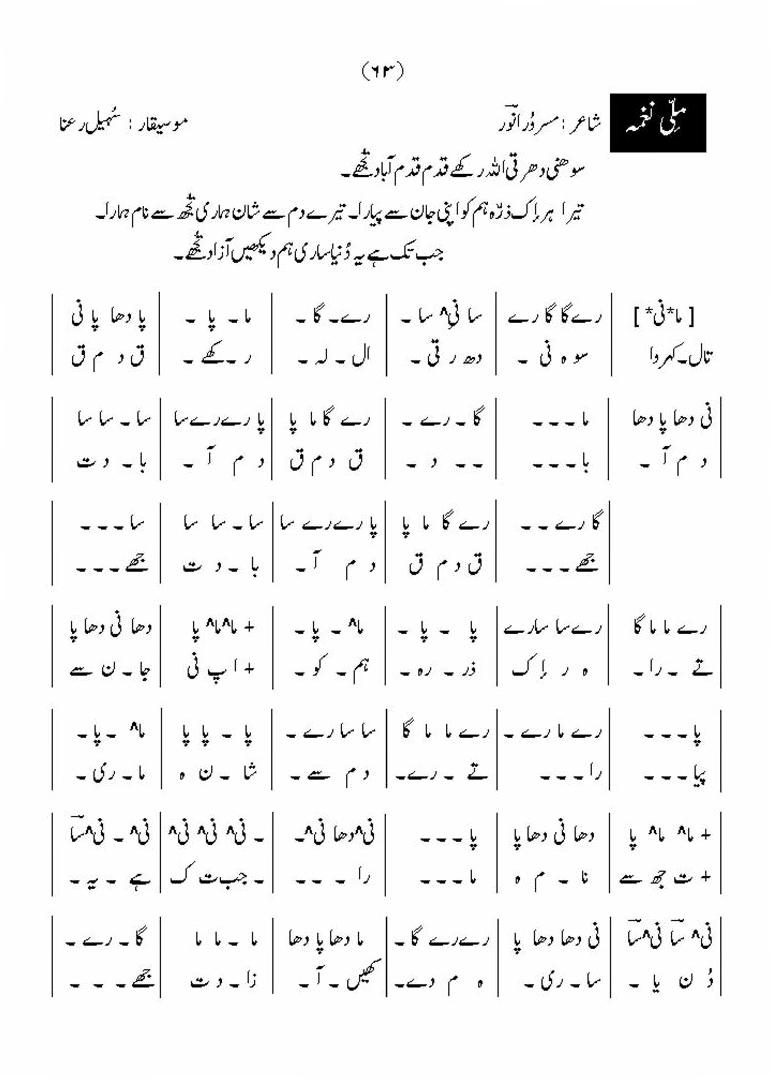 (۶۳)
ملّی نغمہ شاعر: مسرور انور موسیقار: سُہیل رعنا
سوھنی دھرتی اللہ رکھے قدم قدم آباد تجُھے۔
تیرا ہر اِک ذرّہ ہم کو اپنی جان سے پیارا۔ تیرے دم سے شان ہماری تجُھ سے نام ہمارا۔
جب تک ہے یہ دُنیا ساری ہم دیکھیں آزاد تجُھے۔
[ ما* نی* ] | رے گا گا رے | سا نی^ سا ۔ | رے ۔ گا ۔ | ما ۔ پا ۔ | پا دھا پا نی |
تال ۔ کہروا | سو ہ نی ۔ | دھ ر تی ۔ | ال ۔ لہ ۔ | ر ۔ کھے ۔ | ق د م ق |
نی دھا پا دھا | ما ۔ ۔ ۔ | گا ۔ رے ۔ | رے گا ما پا | پا رے رے سا | سا ۔ سا سا |
د م آ ۔ | با ۔ ۔ ۔ | ۔ ۔ د ۔ | ق د م ق | د م آ ۔ | با ۔ د ت |
گا رے ۔ ۔ | رے گا ما پا | پا رے رے سا | سا ۔ سا سا | سا ۔ ۔ ۔ |
جھے ۔ ۔ ۔ | ق د م ق | د م آ ۔ | با ۔ د ت | جھے ۔ ۔ ۔ |
رے ما ما گا | رے سا سا رے | پا ۔ پا ۔ | ما^ ۔ پا ۔ | + ما^ ما^ پا | دھا نی دھا پا |
تے ۔ را ۔ | ہ ر اِ ک | ذر ۔ رہ ۔ | ہم ۔ کو ۔ | + ا پ نی | جا ۔ ن سے |
پا ۔ ۔ ۔ | رے ما رے ۔ | رے ما ما گا | سا سا رے ۔ | پا ۔ پا پا | ما^ ۔ پا ۔ |
پیا ۔ ۔ ۔ | را ۔ ۔ ۔ | تے ۔ رے ۔ | د م سے ۔ | شا ۔ ن ہ | ما ۔ ری ۔ |
+ ما^ ما^ پا | دھا نی دھا پا | پا ۔ ۔ ۔ | نی^ دھا نی^ ۔ | ۔ نی^ نی^ نی^ | نی^ ۔ نی^ سا |
+ ت جھ سے | نا ۔ م ہ | ما ۔ ۔ ۔ | را ۔ ۔ ۔ | ۔ جب ت ک | ہے ۔ یہ ۔ |
نی^ سا نی^ سا | نی دھا دھا پا | رے رے گا ۔ | ما دھا پا دھا | ما ۔ ما ما | گا ۔ رے ۔ |
دُ ن یا ۔ | سا ۔ ری ۔ | ہ م دے ۔ | کھیں ۔ آ ۔ | زا ۔ د ت | جھے ۔ ۔ ۔ |